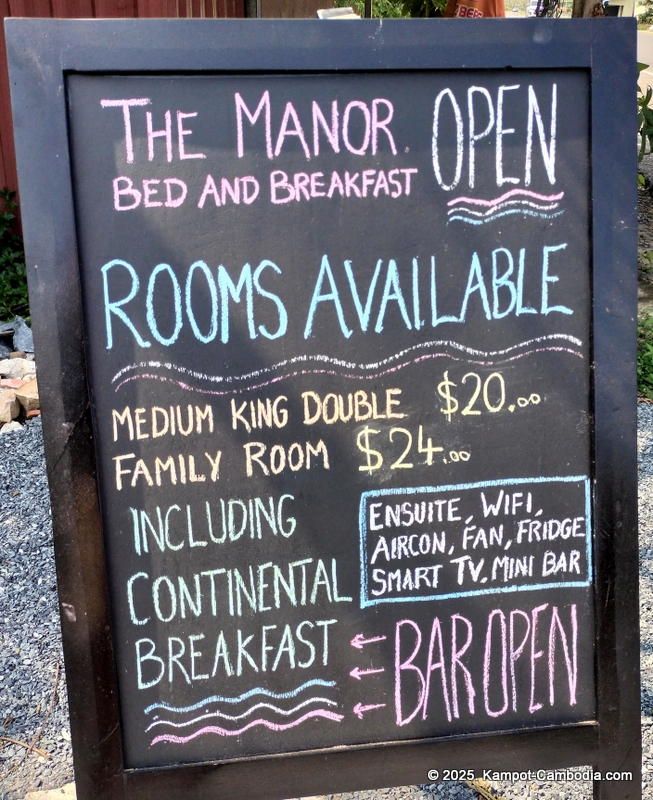 THE MANOR OPEN
BED AND BREAKFAST
ROOMS AVAILABLE
MEDIUM KING DOUBLE $20.00
FAMILY ROOM $24.00
INCLUDING
CONTINENTAL
BREAKFAST
ENSUITE, WIFI,
AIRCON, FAN, FRIDGE
SMART TV, MINI BAR
BAR OPEN
© 2025 Kampot-Cambodia.com